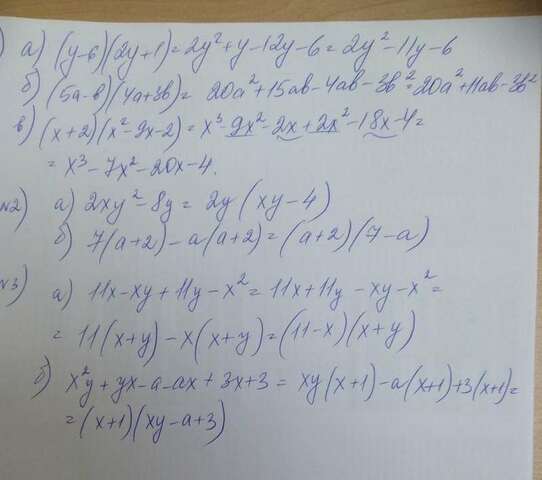 ) а) (y-6)(2y+1)=2y²+y-12y-6=2y²-11y-6
б) (5a-b)(4a+3b)= 20a²+15ab-4ab-3b²=20a²+11ab-3b²
в) (x+2)(x²-9x-2)=x³-9x²-2x+2x²-18x-4=
=x³-7x²-20x-4.
№2) а) 2xy²-8y= 2y(xy-4)
б) 7(a+2)-a(a+2)=(a+2)(7-a)
№3) а) 11x-xy+11y-x²=11x+11y-xy-x²=
= 11(x+y)-x(x+y)=(11-x)(x+y)
б) x²y+yx-a-ax+3x+3= xy(x+1)-a(x+1)+3(x+1)=
=(x+1)(xy-a+3)